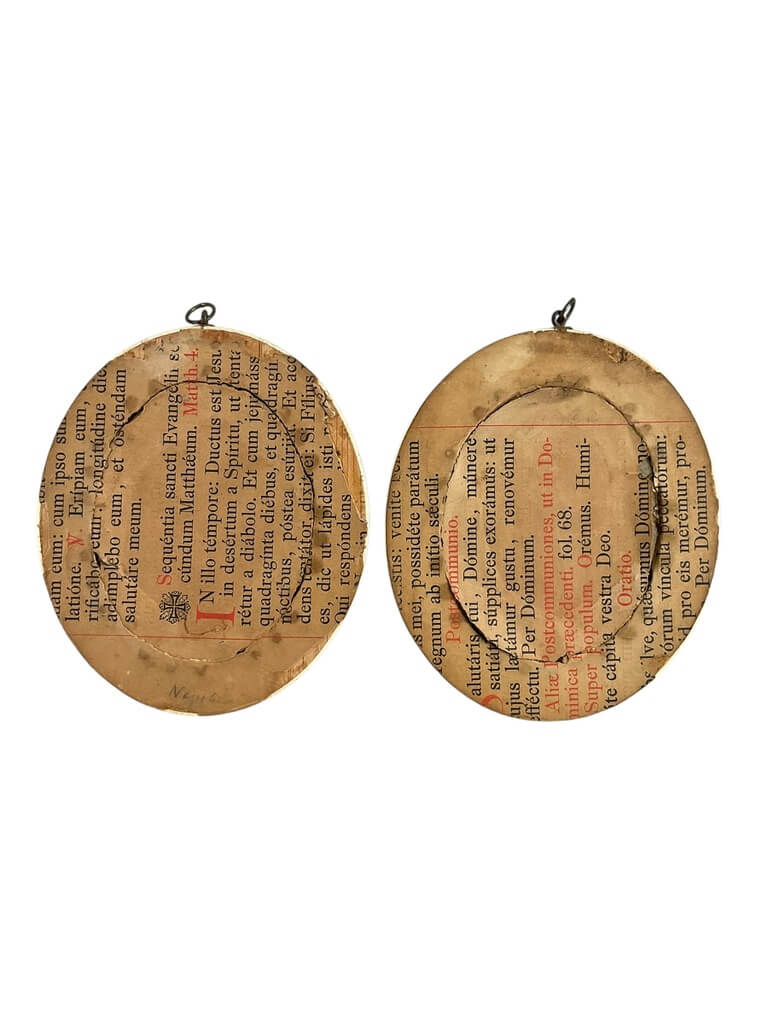 cum eum cum ipso sum
latióne. ℣. Erípiam eum,
rificábo eum: longitúdine die
adimplébo eum, et osténdam
salutáre meum.
Sequéntia sancti Evangélii se
cúndum Matthǽum. Matth. 4.
IN illo témpore: Ductus est Jesu
in desértum a Spíritu, ut tentá
rétur a diábolo. Et cum jejunáss
quadragínta diébus, et quadragín
nóctibus, póstea esúriit. Et acc
dens tentátor, dixit ei: Si Fílius
es, dic ut lápides isti
Qui respóndens
venite
is mei, possidéte parátum
regnum ab inítio sǽculi.
Postcommunio.
Salutáris tui, Dómine, múnere
satiáti, súpplices exorámus: ut
cujus lætámur gustu, renovémur
efféctu. Per Dóminum.
Aliæ Postcommuniones, ut in Do-
minica præcedenti. fol. 68.
Super populum. Orémus. Humi-
áte cápita vestra Deo.
Oratio.
olve, quǽsumus Dómine no
órum víncula peccatórum:
id pro eis merémur, pro-
Per Dóminum.